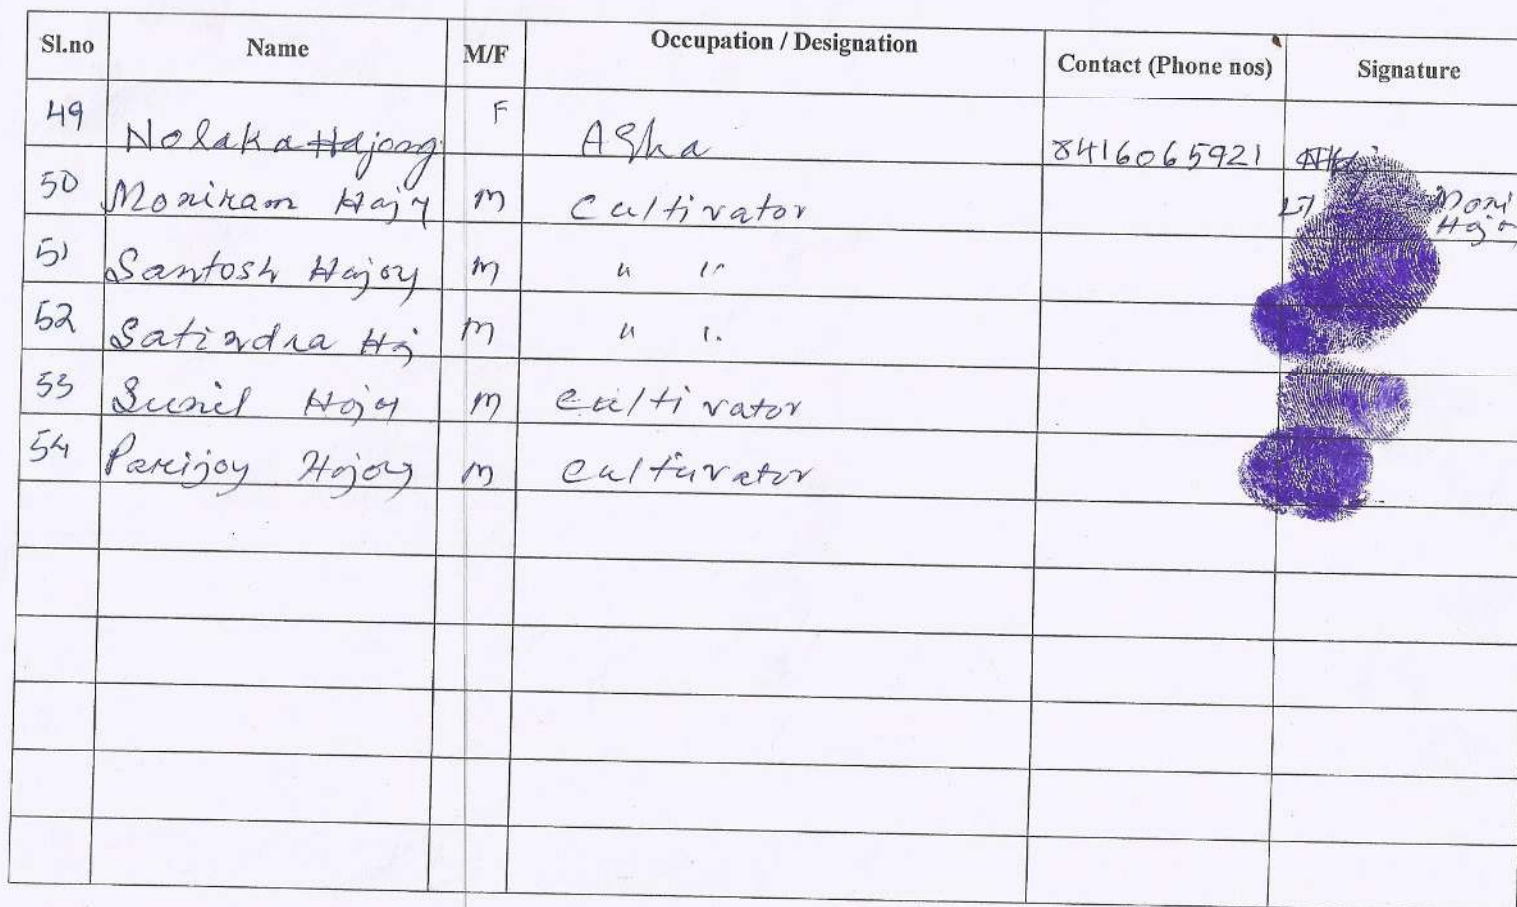 Sl.no Name M/F Occupation / Designation Contact (Phone nos) Signature
49 Nolaka Hajong F Asha 8416065921
50 Moniram Hajg M Cultivator LTI Moni
Hajo
51 Santosh Hajoy M " "
52 Satindra Hj M " "
53 Sunil Hojg M Cultivator
54 Parijoy Hojoy M Culturator